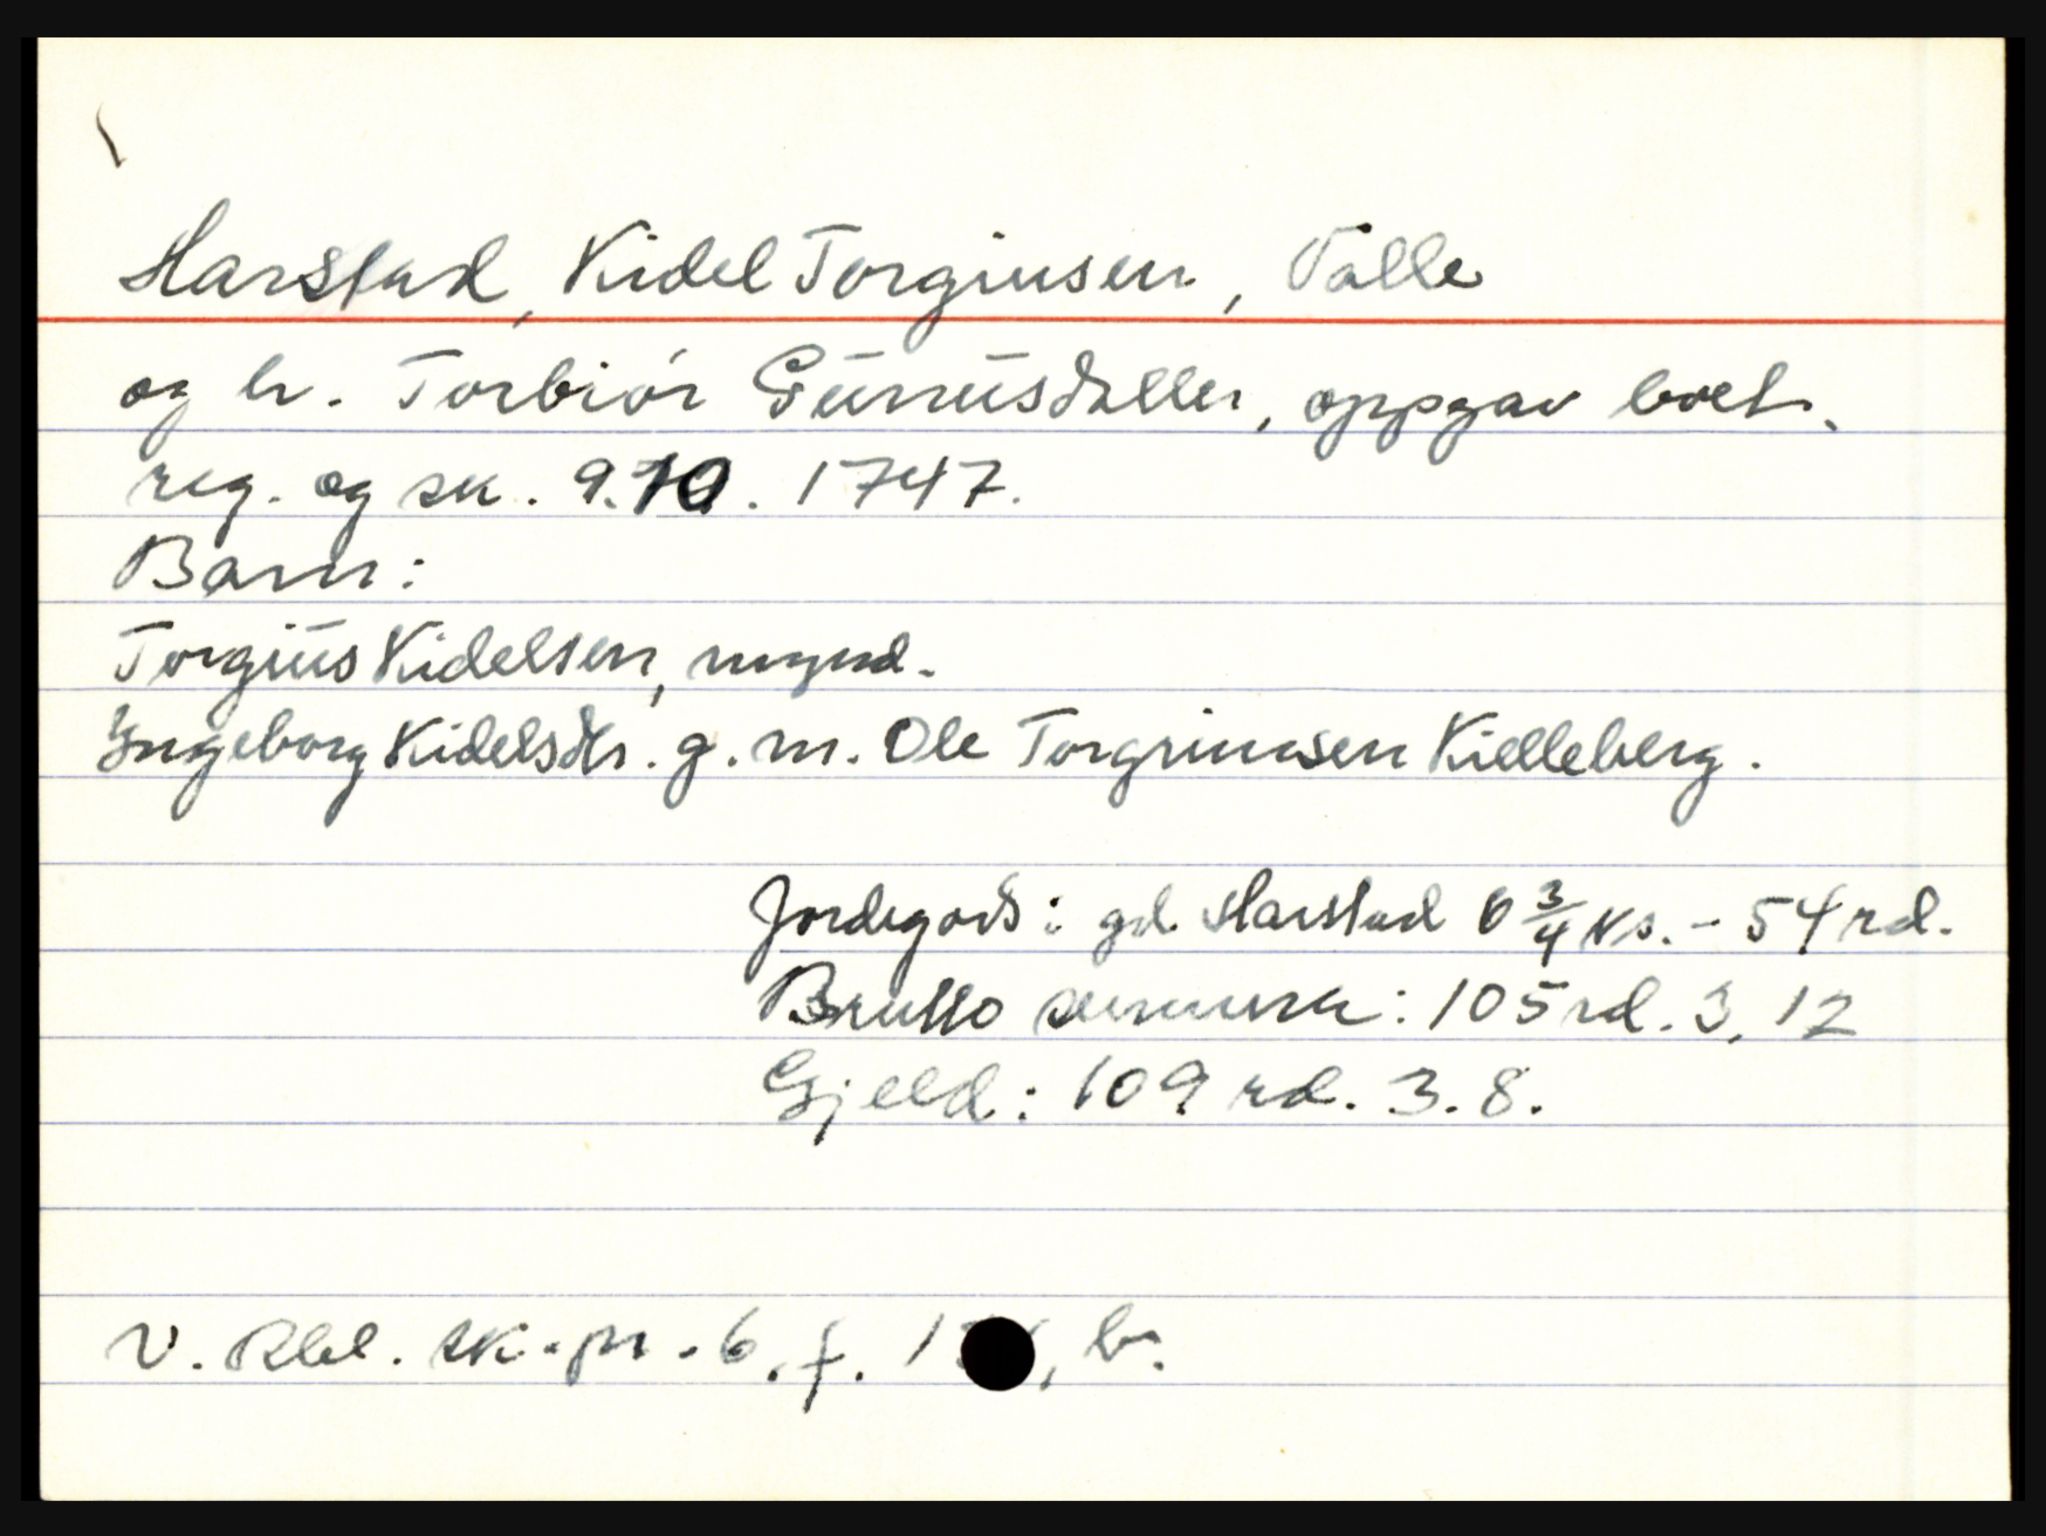 Harstad, Kidel Torgiusen, Valle
og h. Torbiór Gunnusdatter, oppgav boet.
reg. og sk. 9.10. 1747.
Barn:
Torgius Kidelsen, mynd.
Ingeborg Kidelsdtr. g. m. Ole Torgrimsen Kielleberg.
Jordegods: gd. Harstad 6 3/4 ks. - 54 rd.
Brutto : 105 rd. 3, 12
Gjeld: 109 rd. 3. 8.
V. Rbd. sk. pr. 6, f. b.